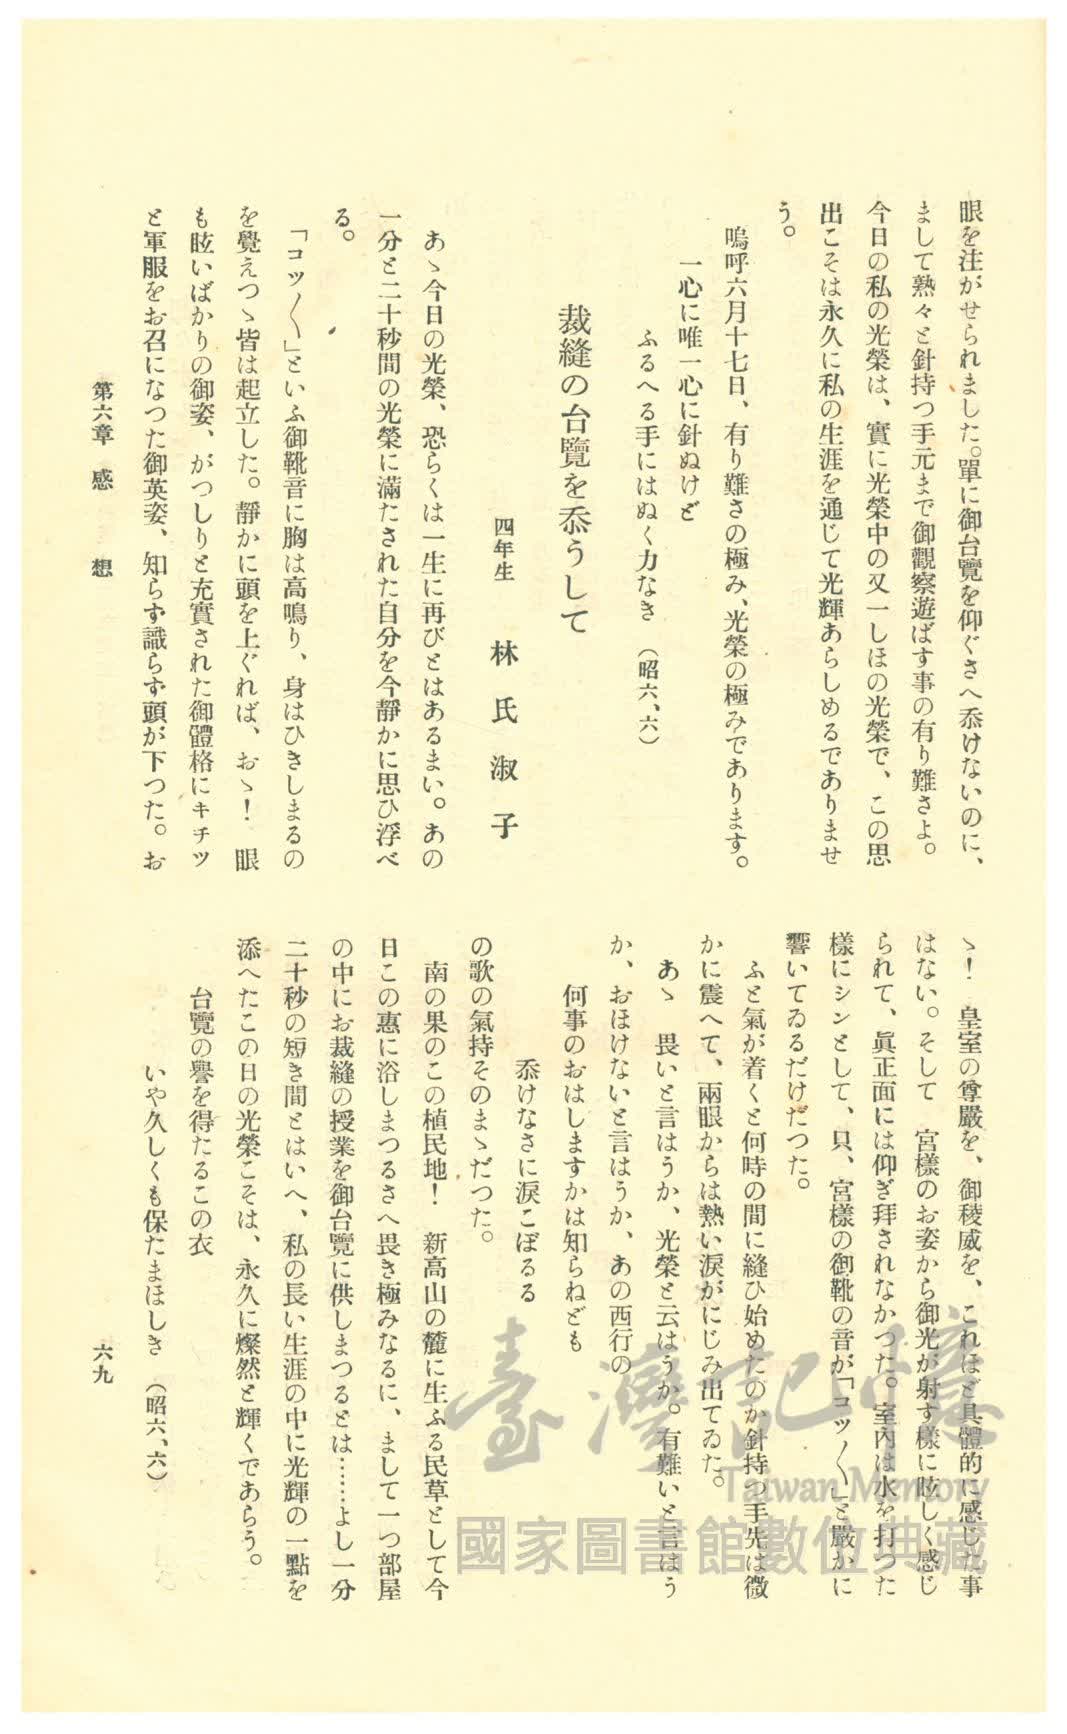 眼を注がせられました。單に御台覽を仰ぐさへ忝けないのに、
まして熟々と針持つ手元まで御觀察遊ばす事の有り難さよ。
今日の私の光榮は、實に光榮中の又一しほの光榮で、この思
出こそは永久に私の生涯を通じて光輝あらしめるでありませ
う。
嗚呼六月十七日、有り難さの極み、光榮の極みであります。
一心に唯一心に針ぬけど
ふるへる手にはぬく力なき （昭六、六）
裁縫の台覽を忝うして
四年生 林氏淑子
あゝ今日の光榮、恐らくは一生に再びとはあるまい。あの
一分と二十秒間の光榮に滿たされた自分を今靜かに思ひ浮べ
る。
「コツ〱」といふ御靴音に胸は高鳴り、身はひきしまるの
を覺えつゝ皆は起立した。靜かに頭を上ぐれば、おゝ！ 眼
も眩いばかりの御姿、がつしりと充實された御體格にキチツ
と軍服をお召になつた御英姿、知らず識らず頭が下つた。お
ゝ！ 皇室の尊嚴を、御稜威を、これほど具體的に感じた事
はない。そして 宮樣のお姿から御光が射す樣に眩しく感じ
られて、眞正面には仰ぎ拜されなかつた。室內は水を打つた
樣にシンとして、只、宮樣の御靴の音が「コツ〱」と嚴かに
響いてゐるだけだつた。
ふと氣が着くと何時の間に縫ひ始めたのか針持つ手先は微
かに震へて、兩眼からは熱い淚がにじみ出てゐた。
あゝ 畏いと言はうか、光榮と云はうか。有難いと言はう
か、おほけないと言はうか、あの西行の
何事のおはしますかは知らねども
忝けなさに淚こぼるる
の歌の氣持そのまゝだつた。
南の果のこの植民地！ 新高山の麓に生ふる民草として今
日この惠に浴しまつるさへ畏き極みなるに、まして一つ部屋
の中にお裁縫の授業を御台覽に供しまつるとは……よし一分
二十秒の短き間とはいへ、私の長い生涯の中に光輝の一點を
添へたこの日の光榮こそは、永久に燦然と輝くであらう。
台覽の譽を得たるこの衣
いや久しくも保たまほしき （昭六、六）
第六章 感想
六九
臺灣記憶
Taiwan Memory
國家圖書館數位典藏